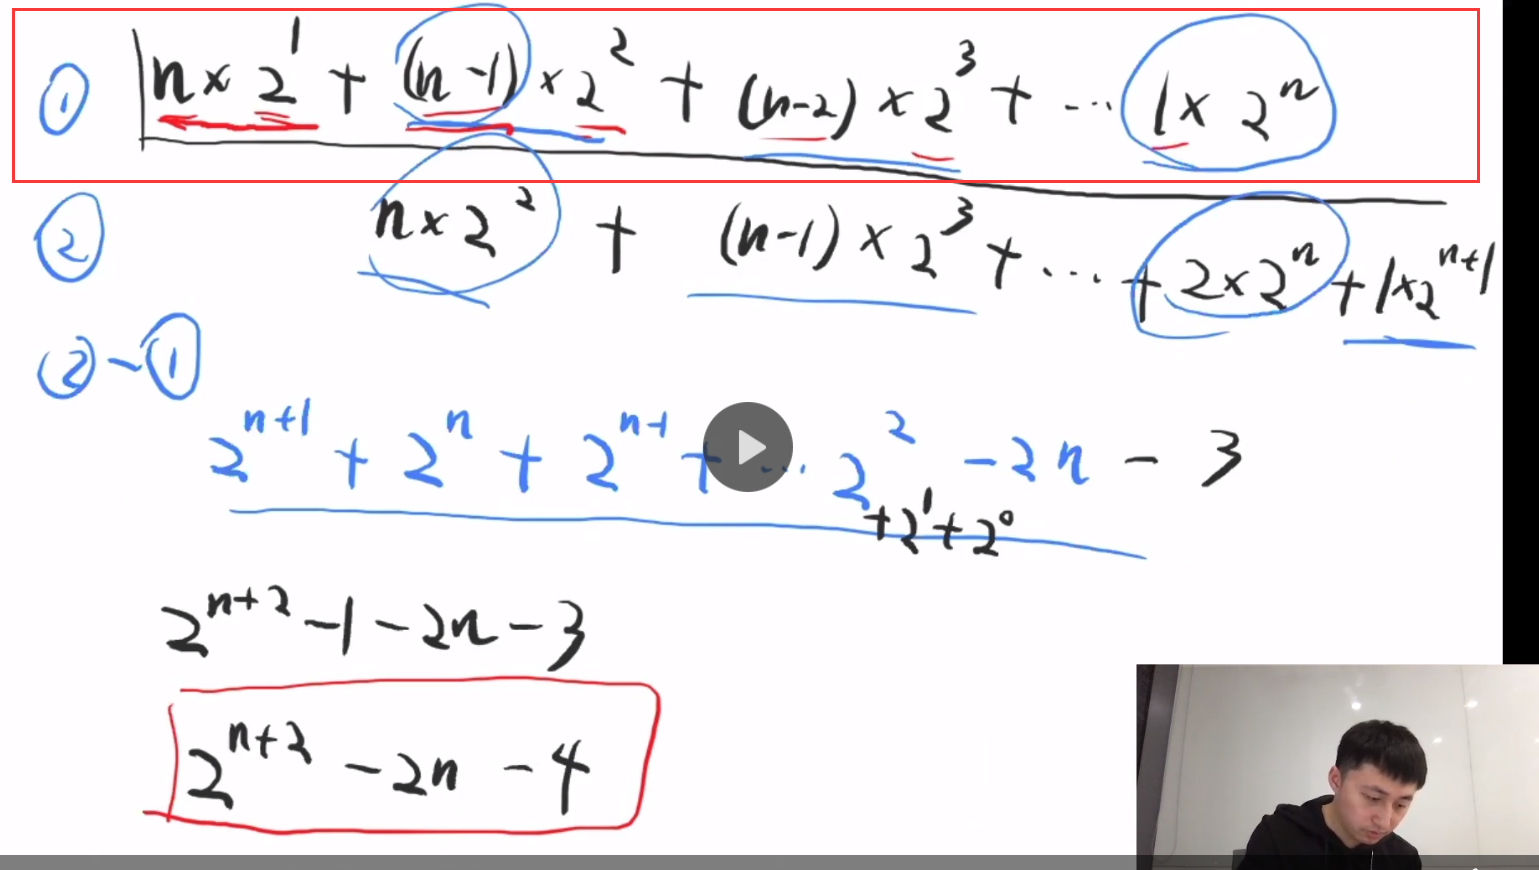 ① n × 2^1 + (n-1) × 2^2 + (n-2) × 2^3 + ... 1 × 2^n
② n × 2^2 + (n-1) × 2^3 + ... + 2 × 2^n + 1 × 2^{n+1}
② - ①
2^{n+1} + 2^n + 2^{n-1} + ... 2^2 - 2n - 3
+ 2^1 + 2^0
2^{n+2} - 1 - 2n - 3
2^{n+2} - 2n - 4